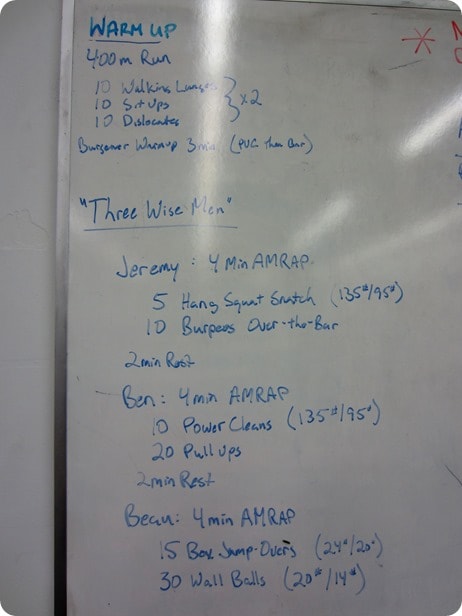 WARM UP
400m Run
10 Walking Lunges
10 Sit Ups } x2
10 Dislocates
Burgener Warmup 3min (PVC then Bar)
"Three Wise Men"
Jeremy: 4 Min AMRAP
5 Hang Squat Snatch (135#/95#)
10 Burpees Over-the-Bar
2min Rest
Ben: 4min AMRAP
10 Power Cleans (135#/95#)
20 Pull ups
2min Rest
Beau: 4min AMRAP
15 Box Jump-Overs (24"/20")
30 Wall Balls (20#/14#)